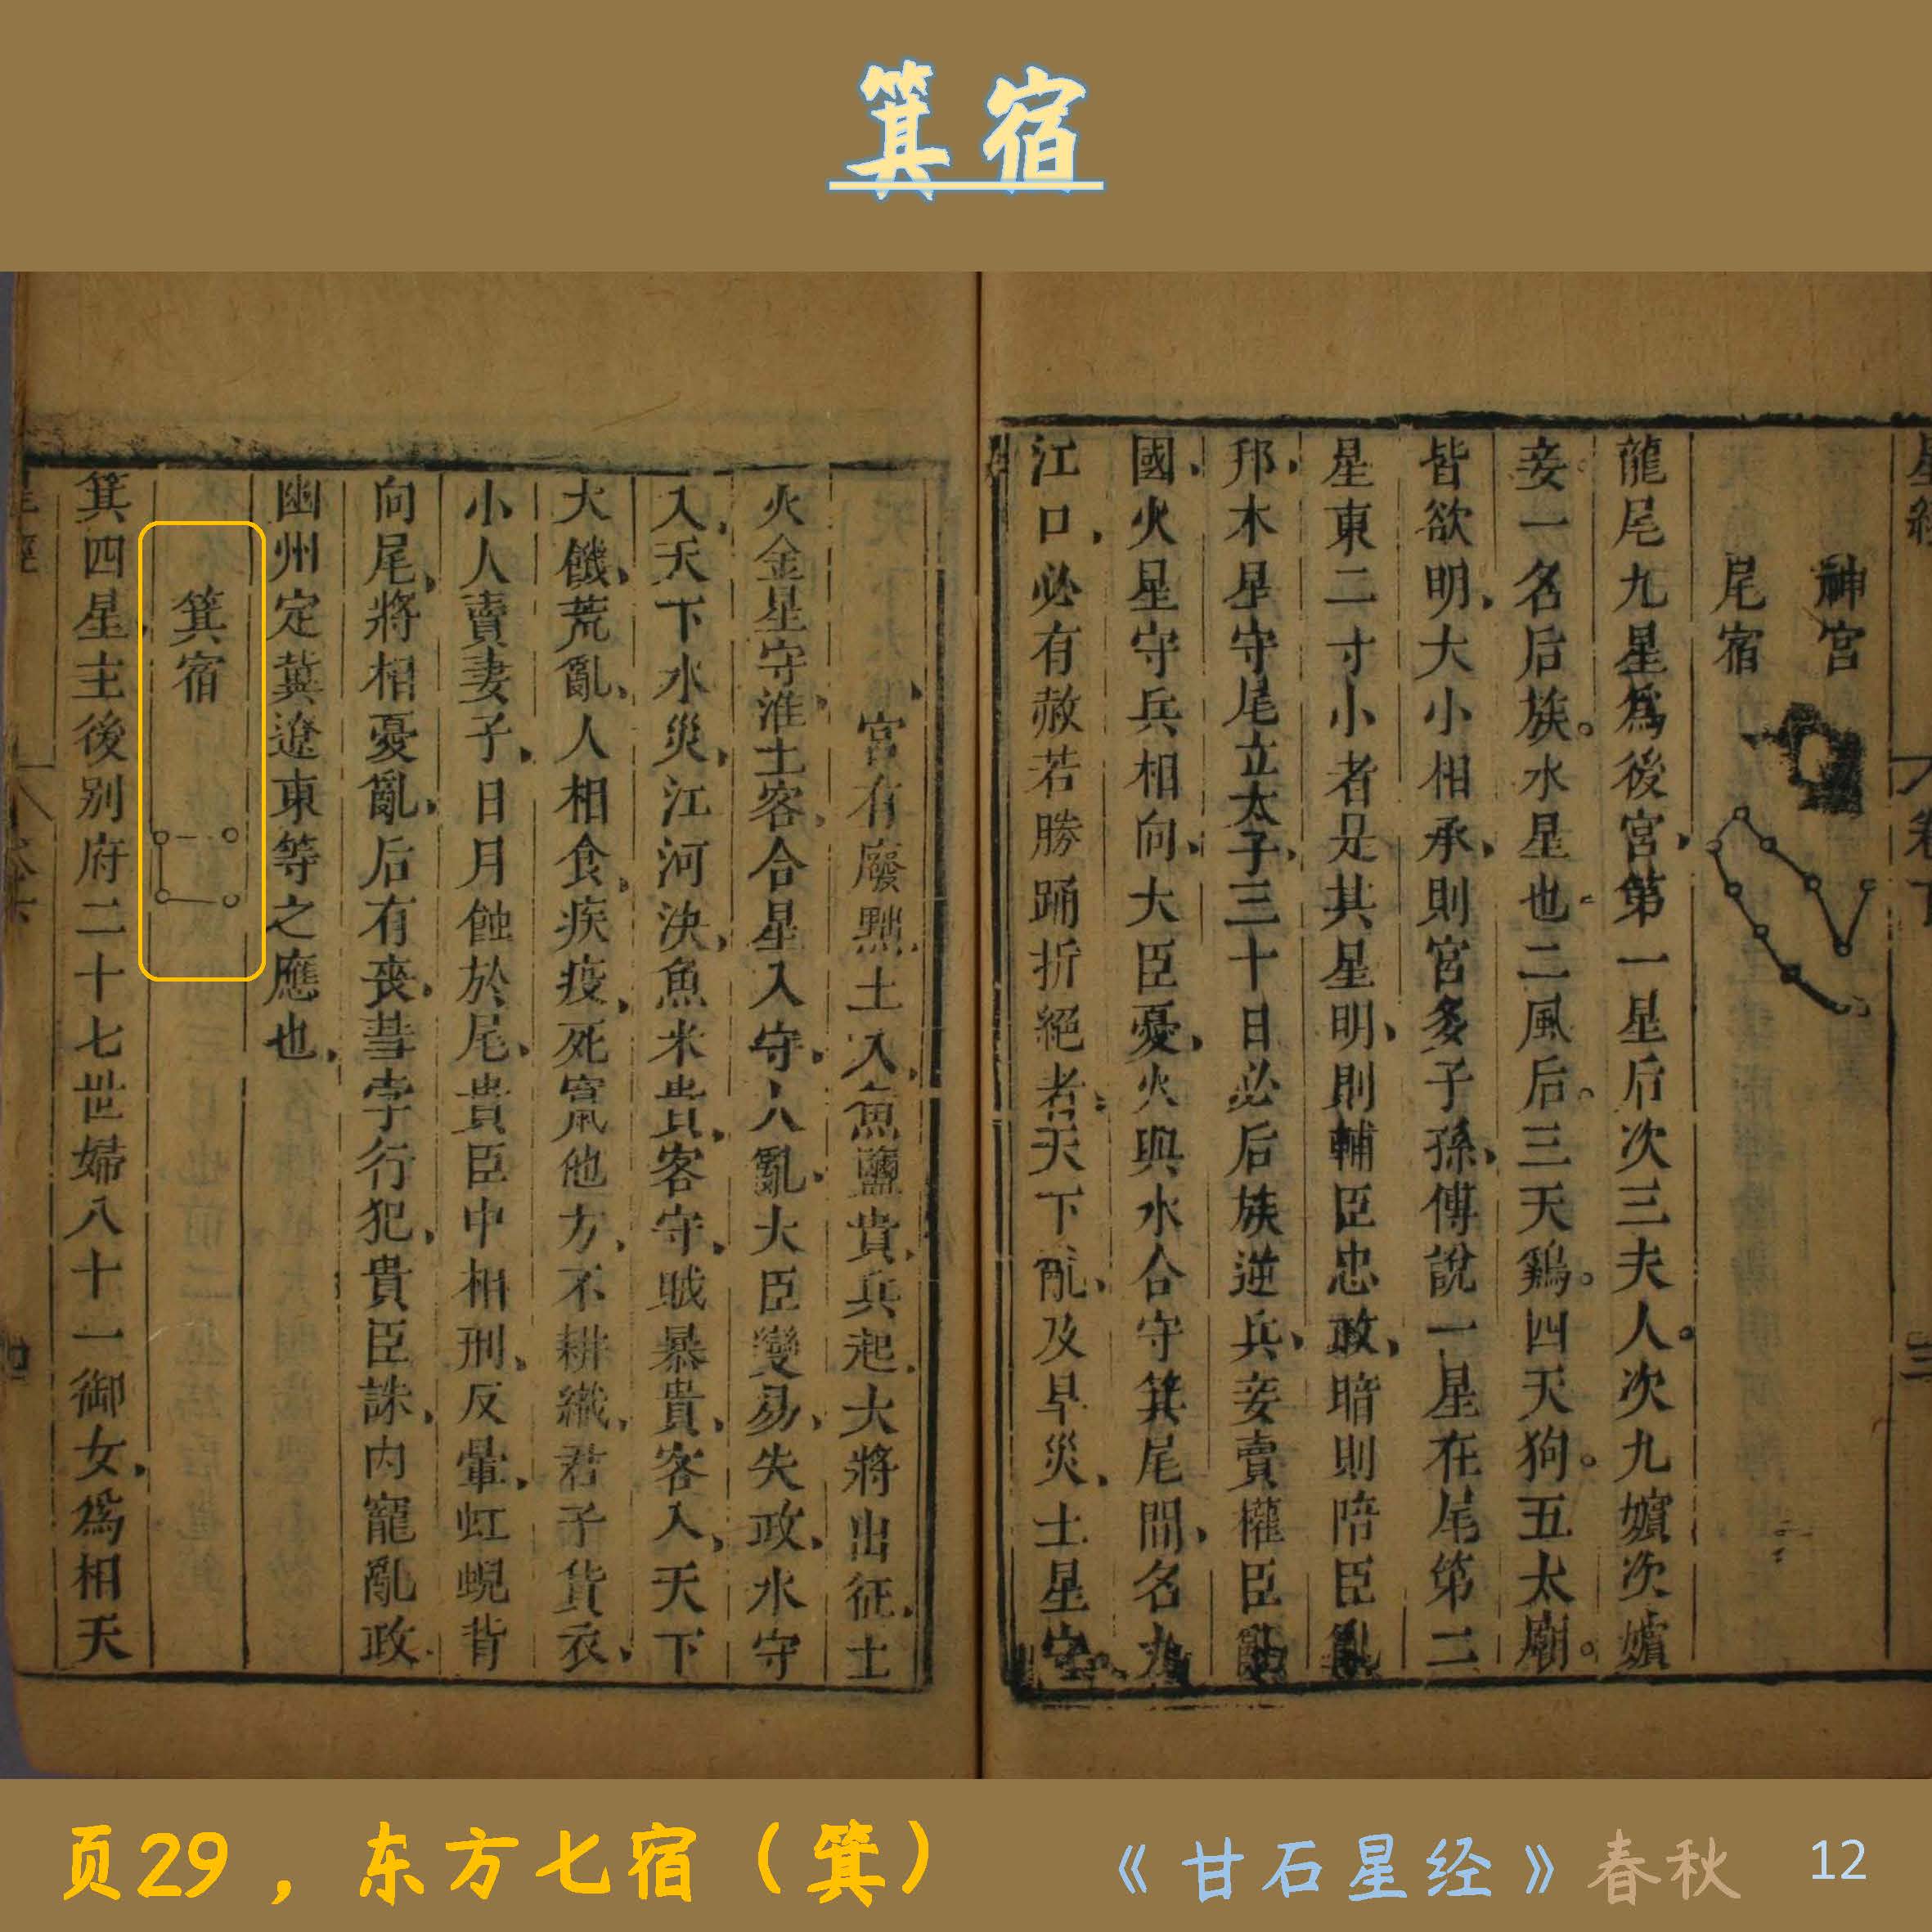 箕宿
神宮
尾宿
龍尾九星爲後宮第一星后次三夫人次九嬪次嬪
妾一名后族水星也二風后三天鷄四天狗五太廟
皆欲明大小相承則宮多子孫傅說一星在尾第二
星東二寸小者是其星明則輔臣忠政暗則陪臣亂
邦木星守尾立太子三十日必后族逆兵妾賣權臣
國火星守兵相向大臣憂火與水合守箕尾間名九
江口必有赦若勝踊折絕者天下亂及旱災土星守
宮有廢黜土入魚鹽貴兵起大將出征土
火金星守淮土客合星入守人亂大臣變易失政水守
入天下水災江河決魚米貴客守賊暴貴客入天下
大饑荒亂人相食疾疫死窮他方不耕織君子貨衣
小人賣妻子日月蝕於尾貴臣中相刑反暈虹蜺背
向尾將相憂亂后有喪彗孛行犯貴臣誅內寵亂政
幽州定冀遼東等之應也
箕宿
箕四星主後別府二十七世婦八十一御女爲相天
页29，东方七宿（箕）
《甘石星经》春秋
12